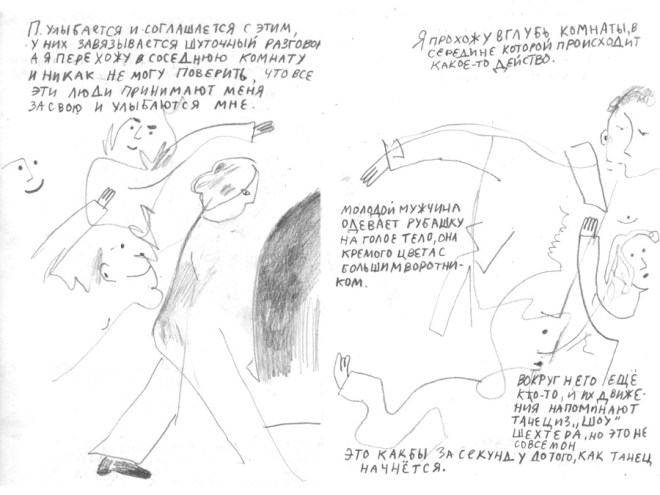 П. УЛЫБАЕТСЯ И СОГЛАШАЕТСЯ С ЭТИМ,
У НИХ ЗАВЯЗЫВАЕТСЯ ШУТОЧНЫЙ РАЗГОВОР
А Я ПЕРЕХОЖУ В СОСЕДНЮЮ КОМНАТУ
И НИКАК НЕ МОГУ ПОВЕРИТЬ, ЧТО ВСЕ
ЭТИ ЛЮДИ ПРИНИМАЮТ МЕНЯ
ЗА СВОЮ И УЛЫБАЮТСЯ МНЕ.
Я ПРОХОЖУ В ГЛУБЬ КОМНАТЫ, В
СЕРЕДИНЕ КОТОРОЙ ПРОИСХОДИТ
КАКОЕ-ТО ДЕЙСТВО.
МОЛОДОЙ МУЖЧИНА
ОДЕВАЕТ РУБАШКУ
НА ГОЛОЕ ТЕЛО, ОНА
КРЕМОГО ЦВЕТА С
БОЛЬШИМ ВОРОТНИ-
КОМ.
ВОКРУГ НЕГО ЕЩЁ
КТО-ТО, И ИХ ДВИЖЕ-
НИЯ НАПОМИНАЮТ
ТАНЕЦ ИЗ „ШОУ"
ШЕХТЕРА, НО ЭТО НЕ
СОВСЕМ ОН
ЭТО КАК БЫ ЗА СЕКУНДУ ДО ТОГО, КАК ТАНЕЦ
НАЧНЁТСЯ.